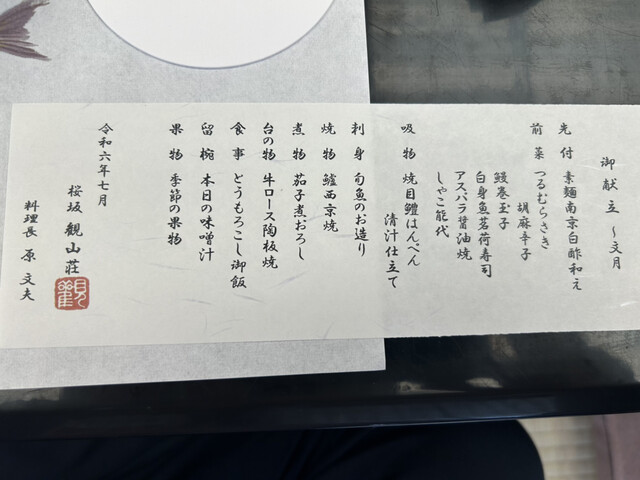 御献立 ～文月
先付 素麺南京白酢和え
前菜 つるむらさき
胡麻辛子
鰻巻玉子
白身魚茗荷寿司
アスパラ醤油焼
しゃこ能代
吸物 焼目鱧はんぺん
清汁仕立て
刺身 旬魚のお造り
焼物 鱸西京焼
煮物 茄子煮おろし
台の物 牛ロース陶板焼
食事 とうもろこし御飯
留椀 本日の味噌汁
果物 季節の果物
令和六年七月
桜坂 観山荘
料理長 原 文夫